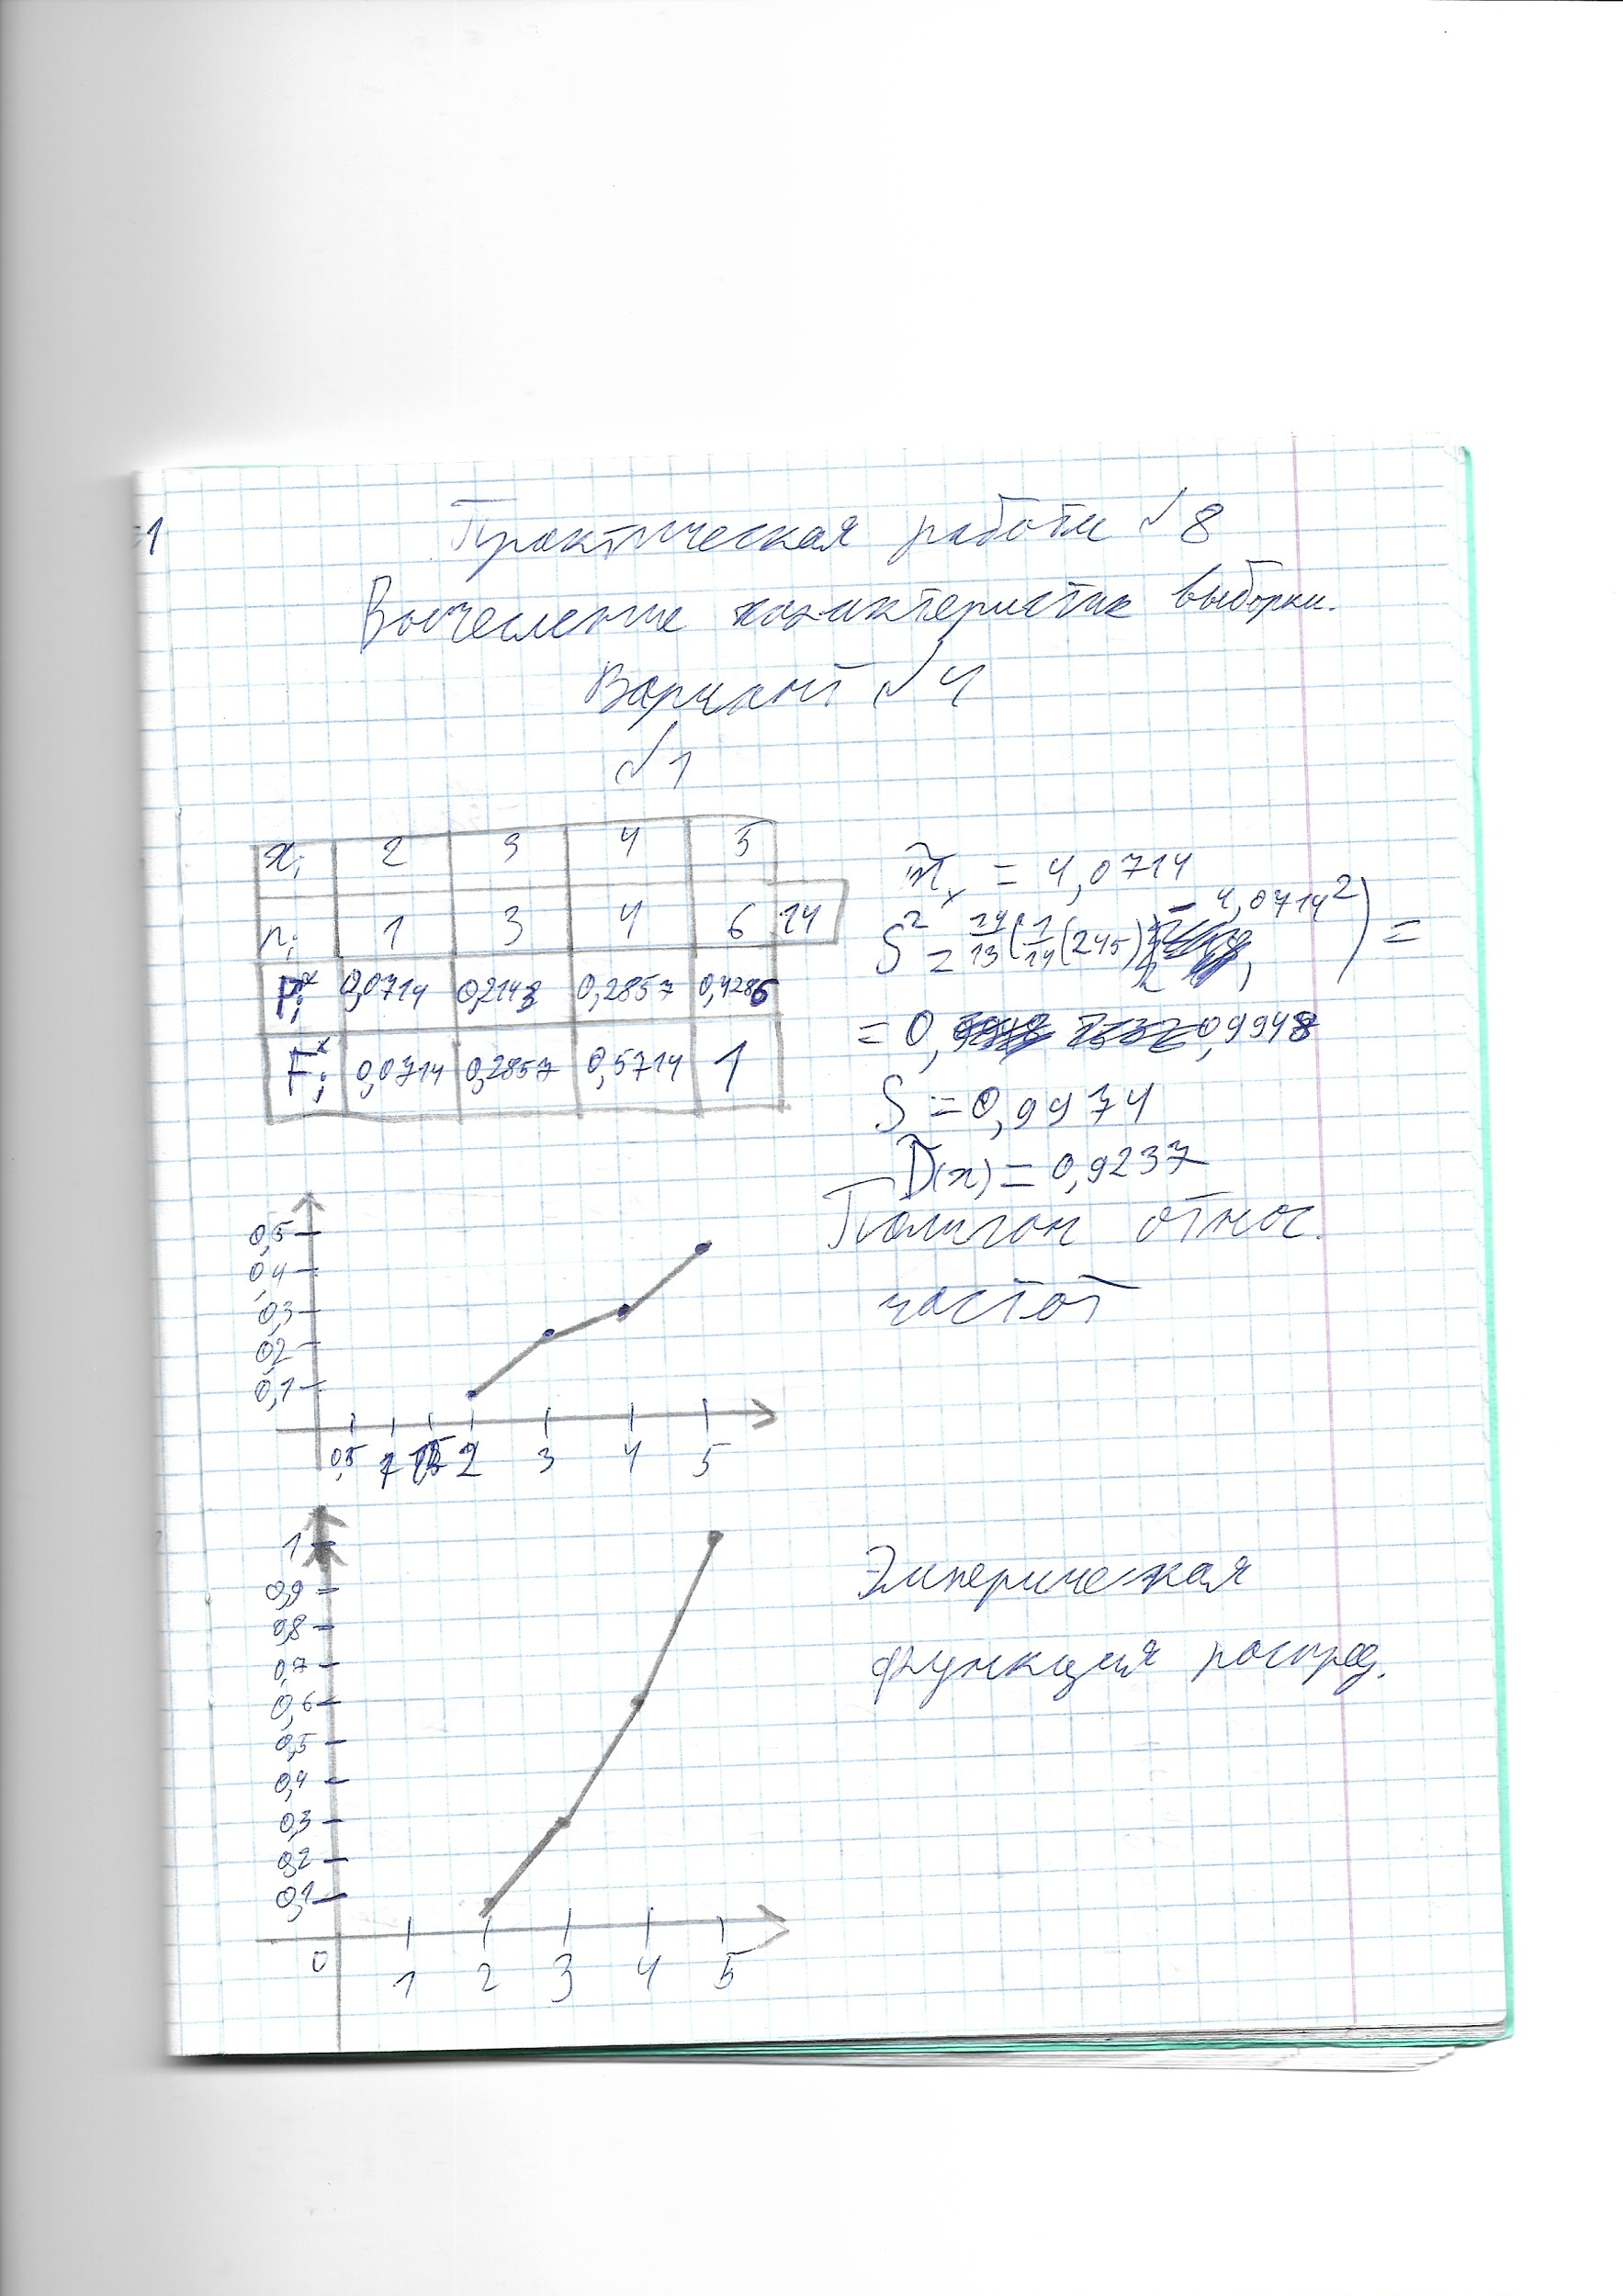 =1
Практическая работа №8
Вычесление характеристик выборки.
Вариант №4
№1
xᵢ 2 3 4 5
nᵢ 1 3 4 6 14
Pᵢ* 0,0714 0,2143 0,2857 0,4286
Fᵢ* 0,0714 0,2857 0,5714 1
m̃ₓ = 4,0714
S² = 14/13 (1/14 (245) - 4,0714²) =
= 0,9948
S = 0,9974
D(x) = 0,9237
Полигон относ.
частот
0,5
0,4
0,3
0,2
0,1
0,5 1 1,5 2 3 4 5
Эмперическая
функция распред.
1
0,9
0,8
0,7
0,6
0,5
0,4
0,3
0,2
0,1
0 1 2 3 4 5